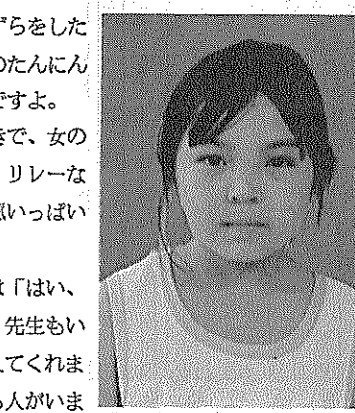 ずらをした
のたんにん
ですよ。
きで、女の
リレーな
いっぱい
は「はい、
先生もい
えてくれま
る人がいま